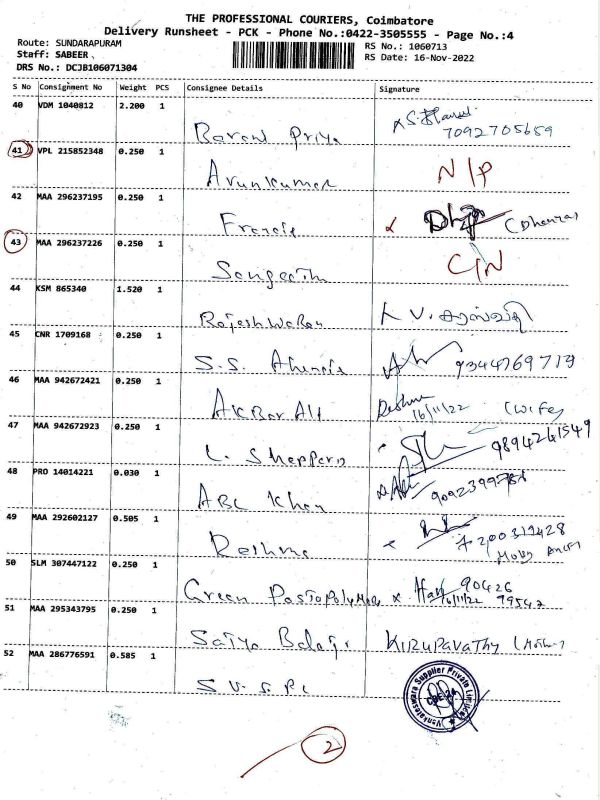 THE PROFESSIONAL COURIERS, Coimbatore
Delivery Runsheet - PCK - Phone No.:0422-3505555 - Page No.:4
Route: SUNDARAPURAM
RS No.: 1060713
Staff: SABEER
RS Date: 16-Nov-2022
DRS No.: DCJB106071304
S No Consignment No Weight PCS Consignee Details Signature
40 VDM 1040812 2.200 1 Priya 7092705659
41 VPL 215852348 0.250 1 Arunkumar N/P
42 MAA 296237195 0.250 1 Francis
43 MAA 296237226 0.250 1 Sangeetha C/N
44 KSM 865340 1.520 1 Rajeshwaran
45 CNR 1709168 0.250 1 S.S. 9344769719
46 MAA 942672421 0.250 1 Akbar Ali Reshma 16/11/22 (Wife)
47 MAA 942672923 0.250 1 L. 9894241549
48 PRO 14014221 0.030 1 ABC Khan
49 MAA 292602127 0.505 1 Reshma 7200319428
50 SLM 307447122 0.250 1 Green 16/11/22 90426 79542
51 MAA 295343795 0.250 1 Satya Balaji Kirupavathy (Mother)
52 MAA 286776591 0.585 1 S.V.S.PL
Venkateswara Supplier Private Limited
2